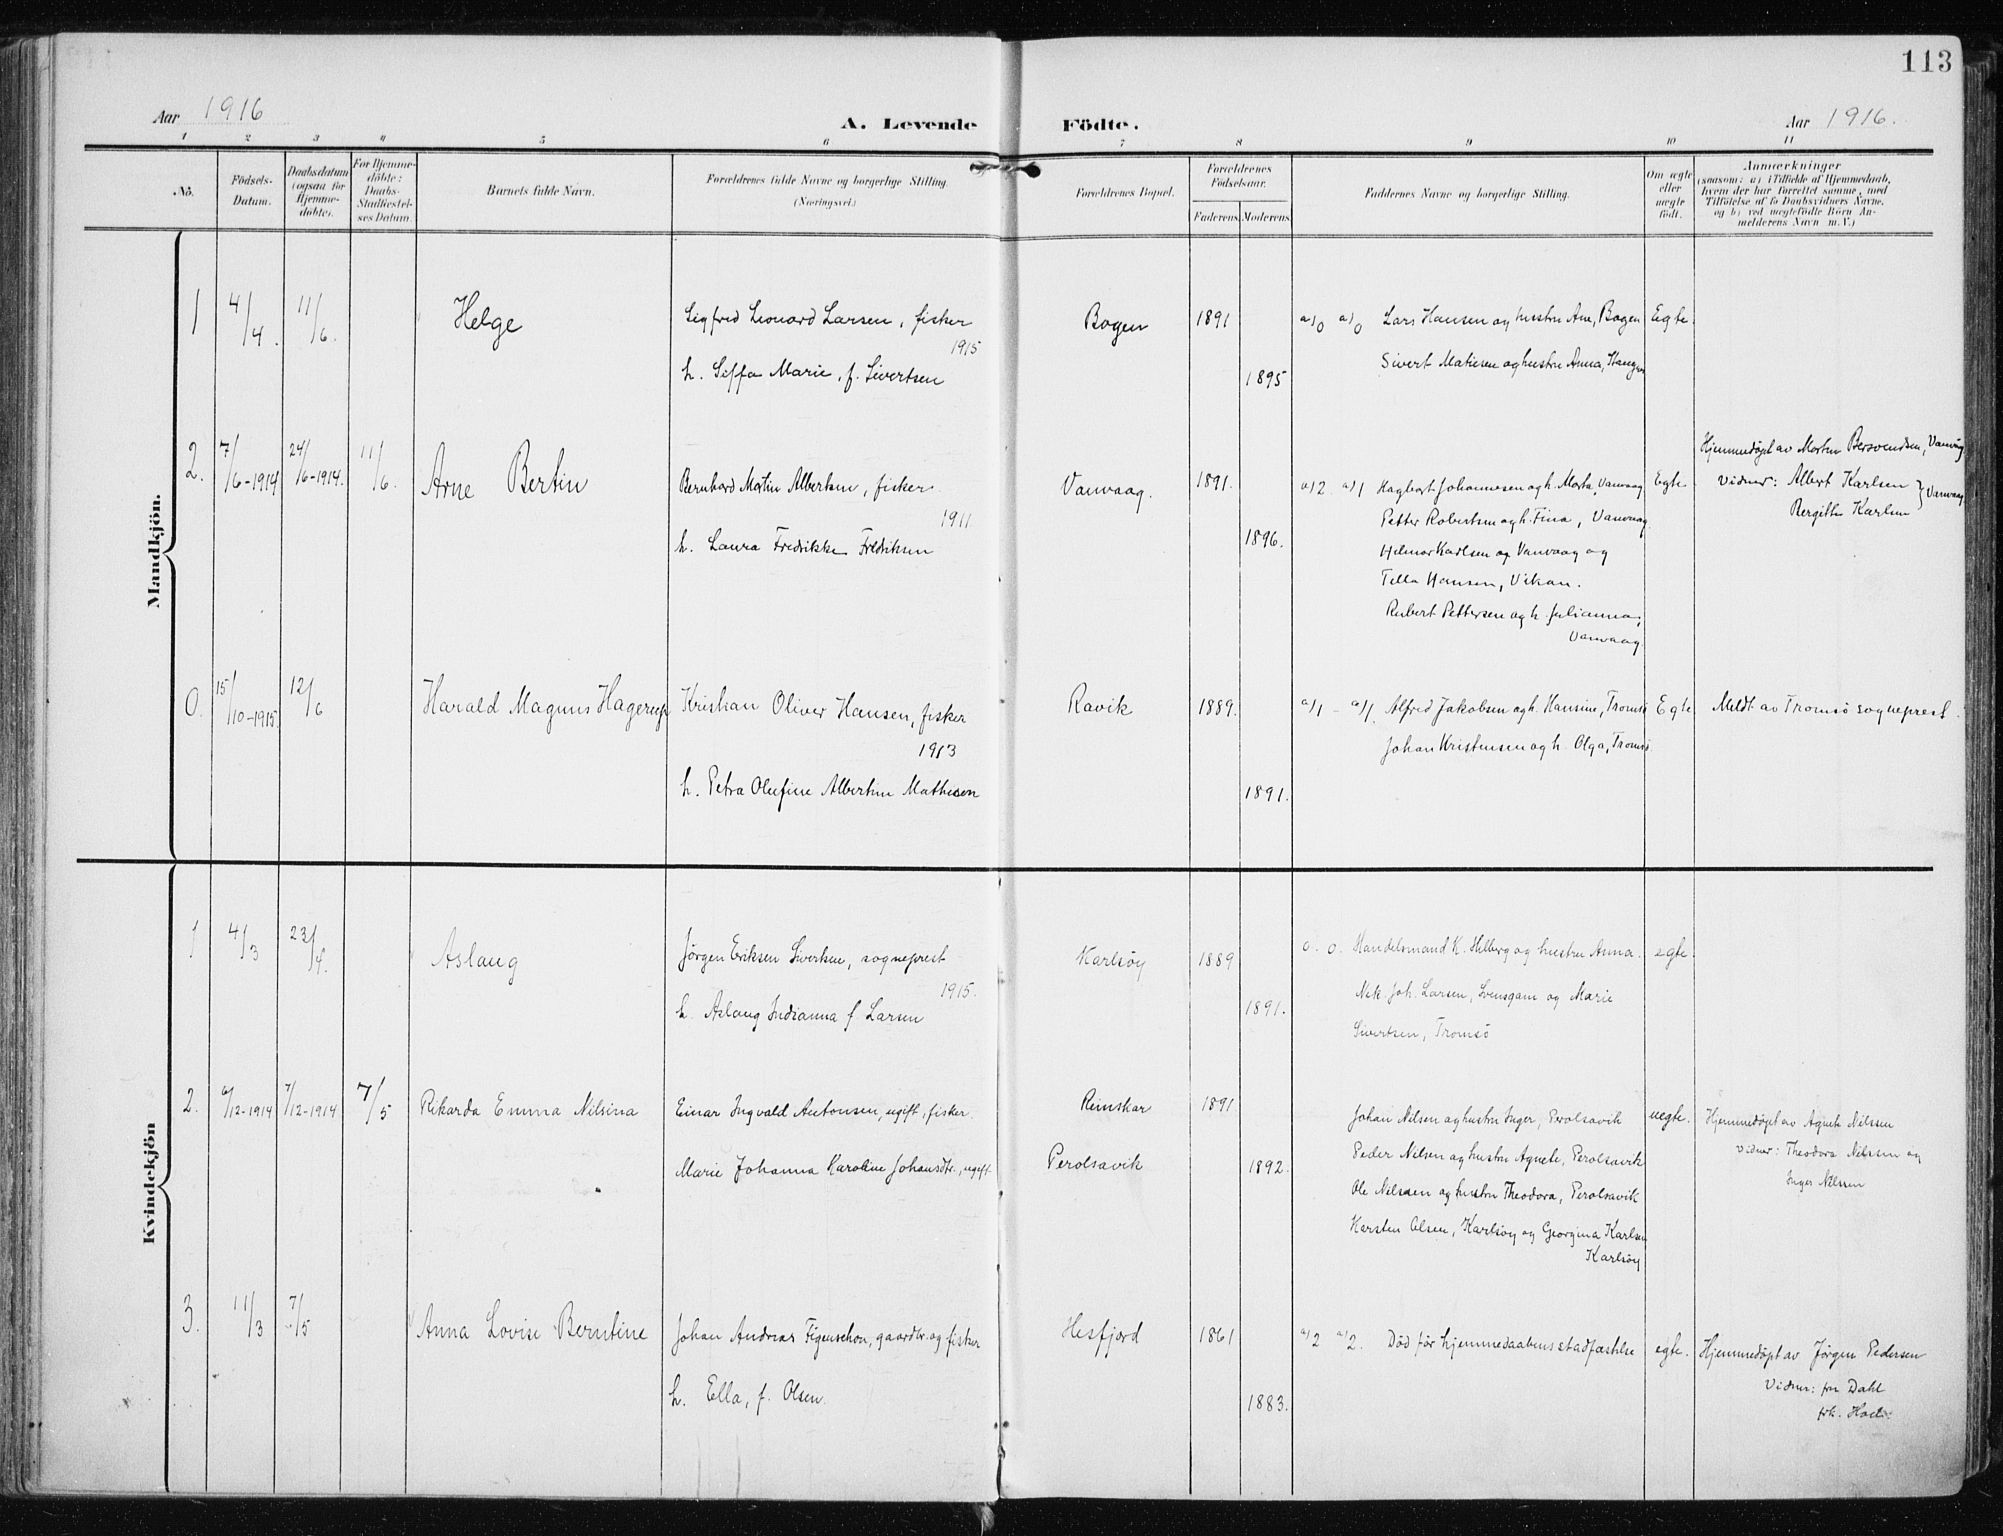 113
Aar 1916
A. Levende Födte.
Aar 1916.
1 2 3 4 5 6 7 8 9 10 11
No.
Födsels-
Datum.
Daabsdatum
(ogsaa for
Hjemme-
döbte).
For Hjemme-
döbte:
Daabs-
Stadfæstel-
ses Datum.
Barnets fulde Navn.
Forældrenes fulde Navne og borgerlige Stilling.
(Næringsvei.)
Forældrenes Bopæl.
Forældrenes
Födselsaar.
Faderens. Moderens.
Faddernes Navne og borgerlige Stilling.
Om ægte
eller
uægte
födt.
Anmærkninger
(saasom: a) i Tilfælde af Hjemmedaab,
hvem der har forrettet samme, med
Tilföielse af to Daabsvidners Navne,
og b) ved uægtefödte Börn An-
melderens Navn m. V.)
Mandkjön.
1 4/4. 11/6. Helge
Sigfred Leonard Larsen, fisker
1915
h. Siffa Marie, f. Sivertsen
Bogen 1891
1895
a/0 a/0 Lars Hansen og hustru Ane, Bogen
Sivert Matisen og hustru Anna,
Egte.
2. 7/6-1914 24/6-1914. 11/6. Arne Bertin
Bernhard Martin Albertsen, fisker.
1911
h. Laura Fredrikke Fredriksen
Vanvaag. 1891.
1896.
a/2. a/1 Hagbart Johannesen og h. Marta, Vanvaag
Petter Robertsen og h. Fina, Vanvaag
Helmar Karlsen og Vanvaag og
Tella Hansen, Vikan.
Robert Pettersen og h. Julianna,
Vanvaag.
Egte
Hjemmedøpt av Morten Bersvendsen, Vanvåg
Vidner: Albert Karlsen
Bergitte Karlsen } Vanvaag
0. 15/10-1915 12/6 Harald Magnus Hagerup
Kristian Oliver Hansen, fisker
1913
h. Petra Olufine Albertine Mathisen
Ravik 1889.
1891.
a/1 - a/1. Alfred Jakobsen og h. Hansine, Tromsø
Johan Kristensen og h. Olga, Tromsø
Egte
Meldt av Tromsö sogneprest.
Kvindekjön
1 4/3 23/4. Aslaug
Jørgen Eriksen Sivertsen, sogneprest
1915.
h. Aslaug Indianna f. Larsen
Karlsöy 1889
1891.
0. 0. Handelsmand K. Hilberg og hustru Anna.
Nik. Joh. Larsen, Svensgam og Marie
Sivertsen, Tromsö
egte.
2. 6/12-1914 7/12-1914 7/5 Rikarda Emma Nilsina
Einar Ingvald Antonsen, ugift, fisker.
Marie Johanna Karoline Johansdtr., ugift
Reinskar 1891
Perolsavik 1892.
Johan Nilsen og hustru Inger, Perolsavik
Peder Nilsen og hustru Agnete, Perolsavik
Ole Nilssen og hustru Theodora, Perolsavik
Karsten Olsen, Karlsöy og Georgina Karlsen
Karlsöy
uegte.
Hjemmedøpt av Agnete Nilssen
Vidner: Theodora Nilssen og
Inger Nilssen
3. 11/3 7/5 Anna Lovise Berntine
Johan Andreas Figenschou, gaardbr. og fisker
h. Ella, f. Olsen.
Hesfjord 1861
1883.
a/2 a/2. Død før hjemmedaabens stadfæstelse
egte.
Hjemmedøpt av Jørgen Pedersen
Vidner: fru Dahl
frk.